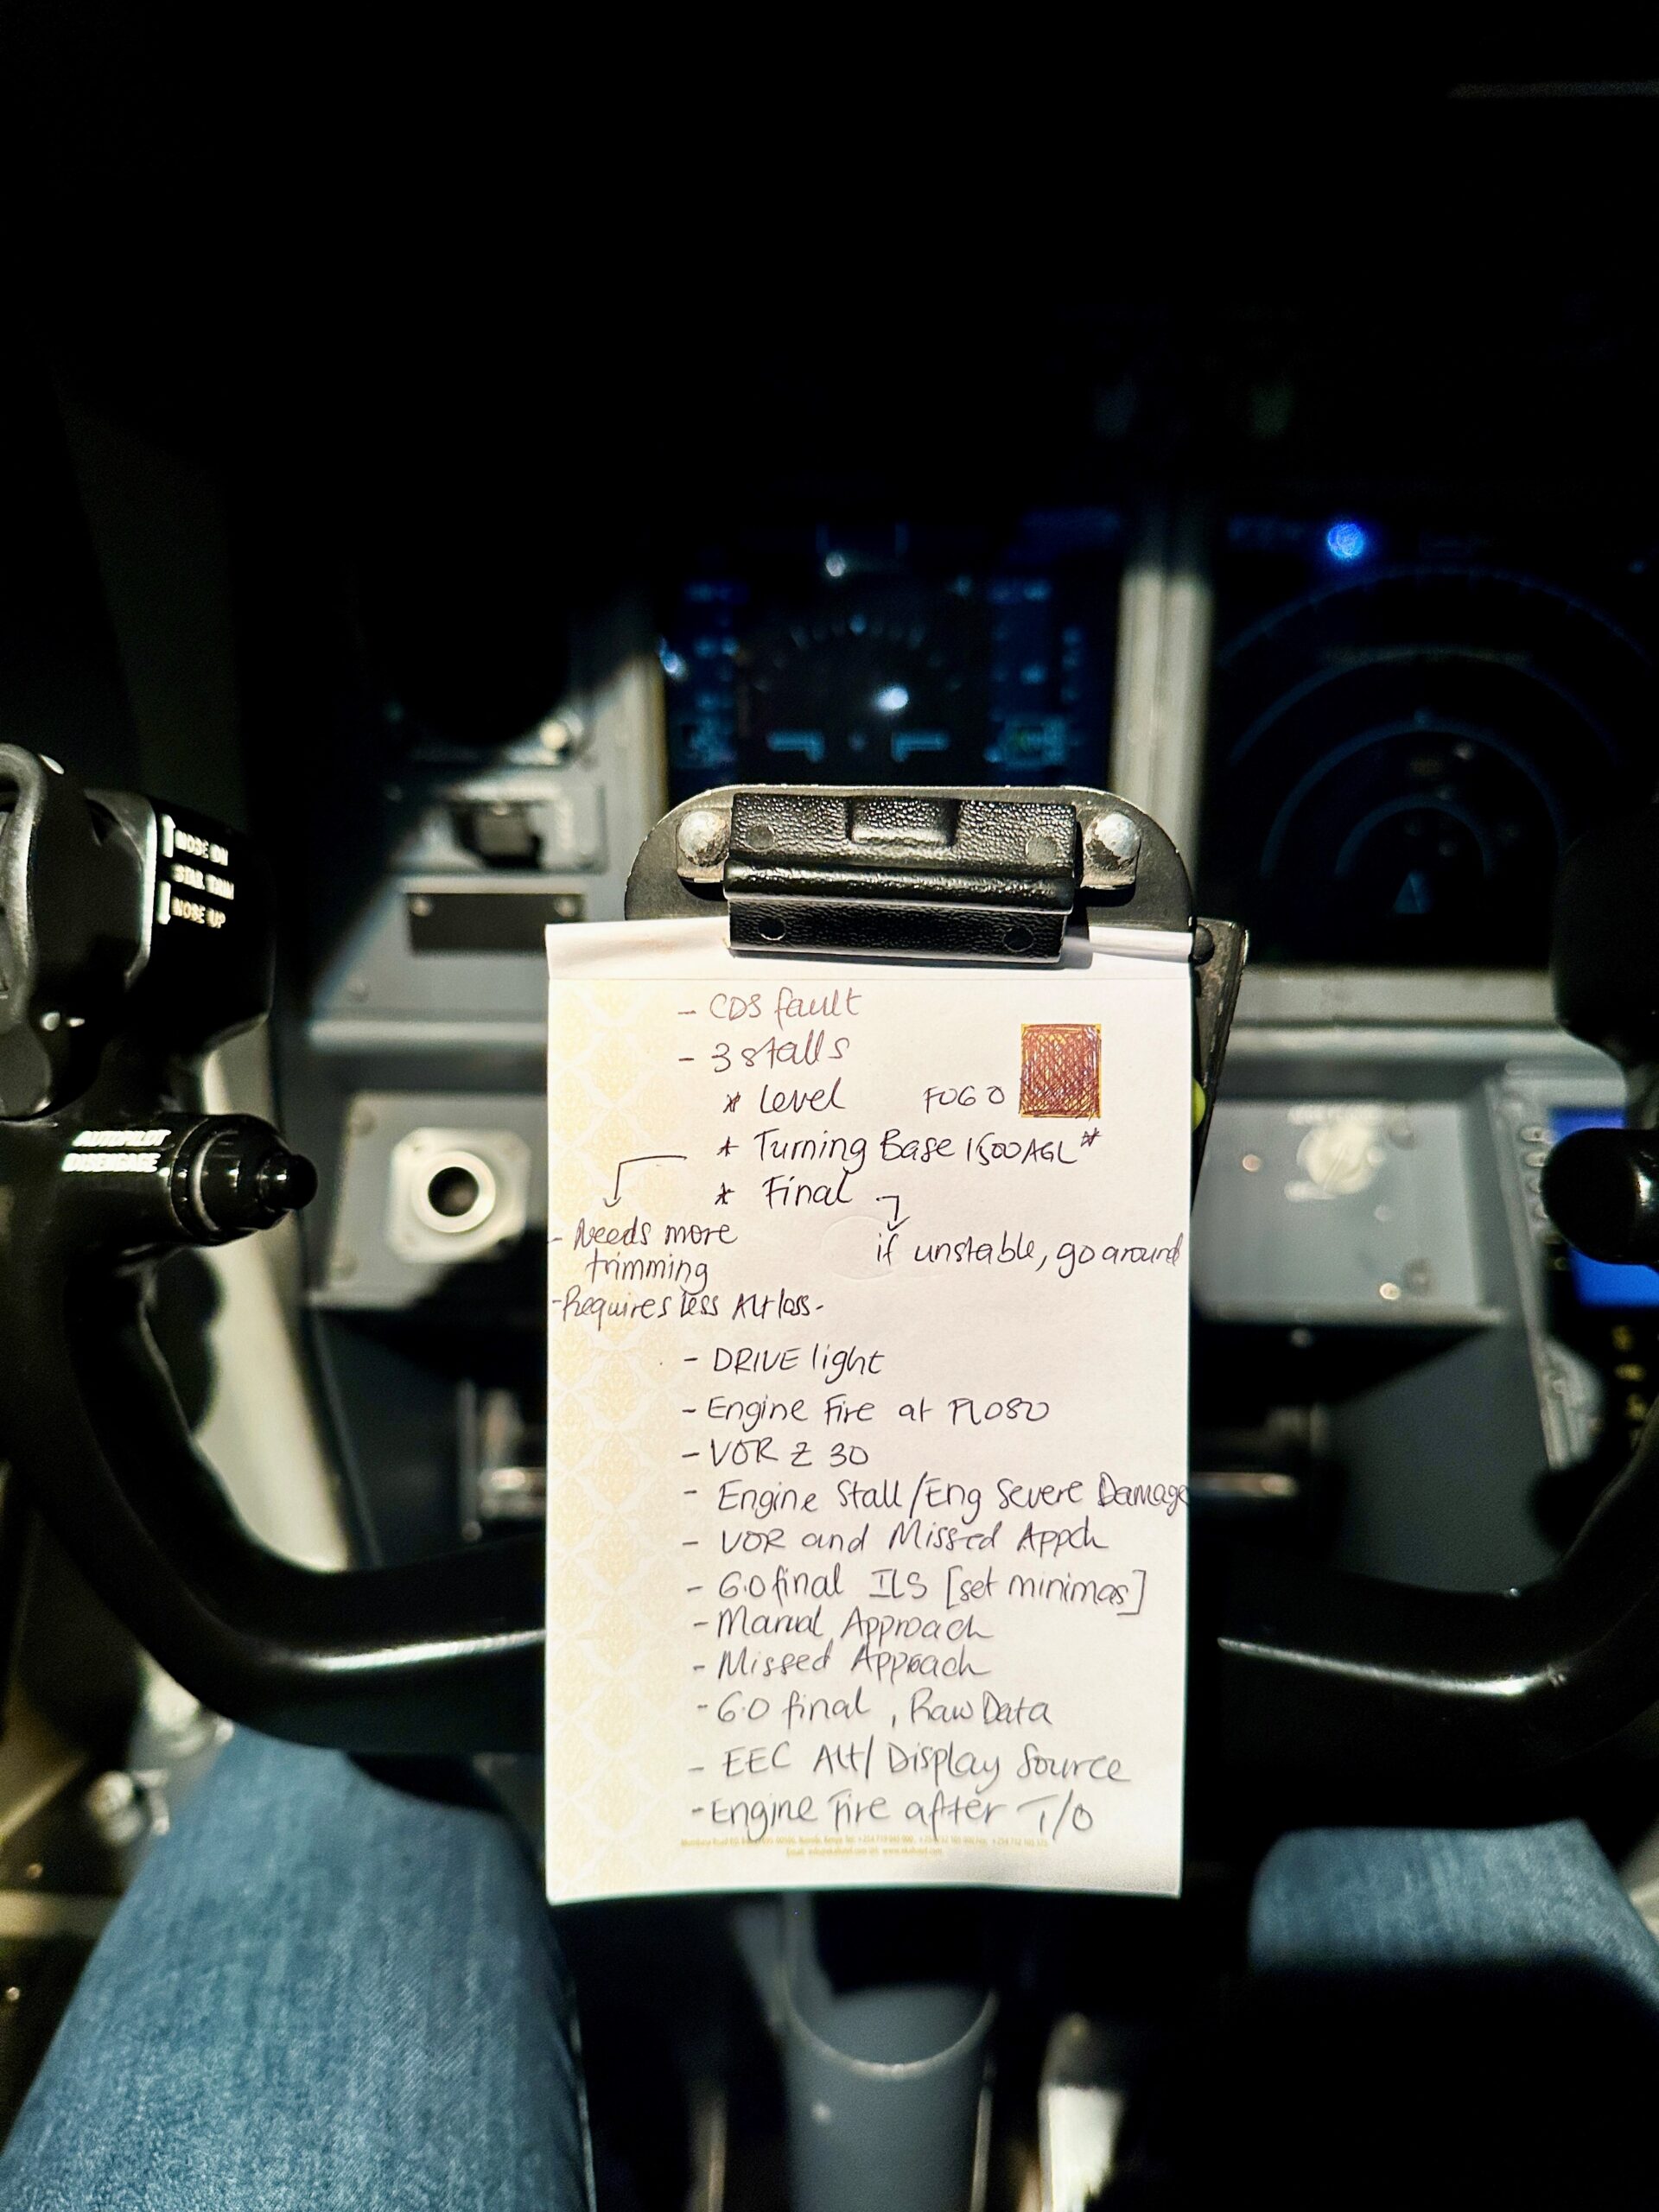 NOSE DN
STAB TRIM
NOSE UP
AUTOPILOT
DISENGAGE
- CDS fault
- 3 stalls
* Level FOGO
* Turning Base 1500AGL*
* Final
- Needs more
trimming
if unstable, go around
- Requires less Alt loss-
- DRIVE light
- Engine Fire at FL080
- VOR Z 30
- Engine Stall/Eng Severe Damage
- VOR and Missed Appch
- 6.0 final ILS [set minimas]
- Manual Approach
- Missed Approach
- 6.0 final, Raw Data
- EEC Alt/Display Source
- Engine Fire after T/O